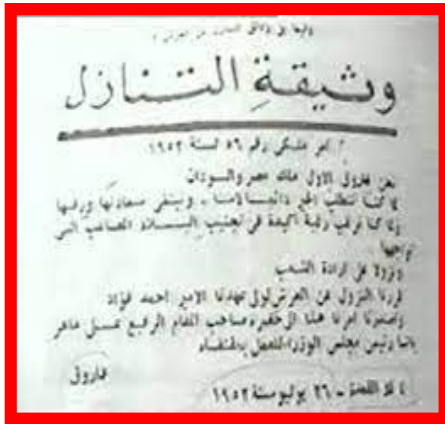 وثيقة التنازل
أمر ملكي رقم ٥٦ لسنة ١٩٥٢
نحن فاروق الاول ملك مصر والسودان
لما كنا نتطلب الخير دائما لامتنا ـ ونبتغي سعادتها ورقيها
ولما كنا نرغب رغبة اكيدة في تجنيب البلاد المصاعب التي
تواجهها
ونزولا على ارادة الشعب
قررنا النزول عن العرش لولي عهدنا الامير احمد فؤاد
واصدرنا امرنا هذا الى حضرة صاحب المقام الرفيع علي ماهر
باشا رئيس مجلس الوزراء للعمل بمقتضاه
فاروق
٢٦ يوليو سنة ١٩٥٢